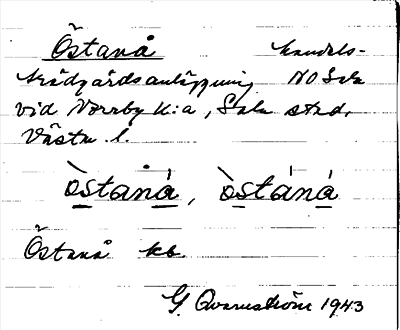 Östanå handels-
trädgårdsanläggning NO Sala
vid Norrby k:a, Sala stad,
Västm. l.
òstanǻ, òstáná
Östanå kb
G. Qvarnström 1943